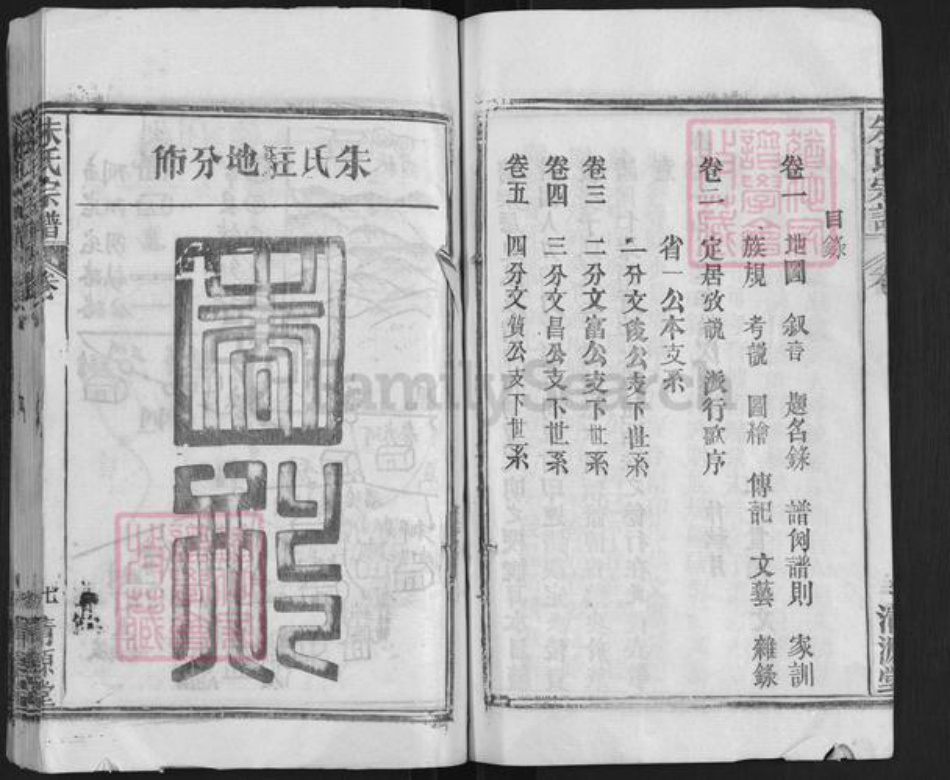 目錄
卷一 地圖 叙音 題名錄 譜例 譜則 家訓
族規 考說 圖檜 傳記 文藝 雜錄
卷二 定居攷說 派行歌序
省一公本支系
卷三 一分文俊公支下世系
二分文富公支下世系
卷四 三分文昌公支下世系
卷五 四分文質公支下世系
朱氏宗譜
清源堂
朱氏宗譜
七 清源堂
朱氏荘地分佈
FamilySearch